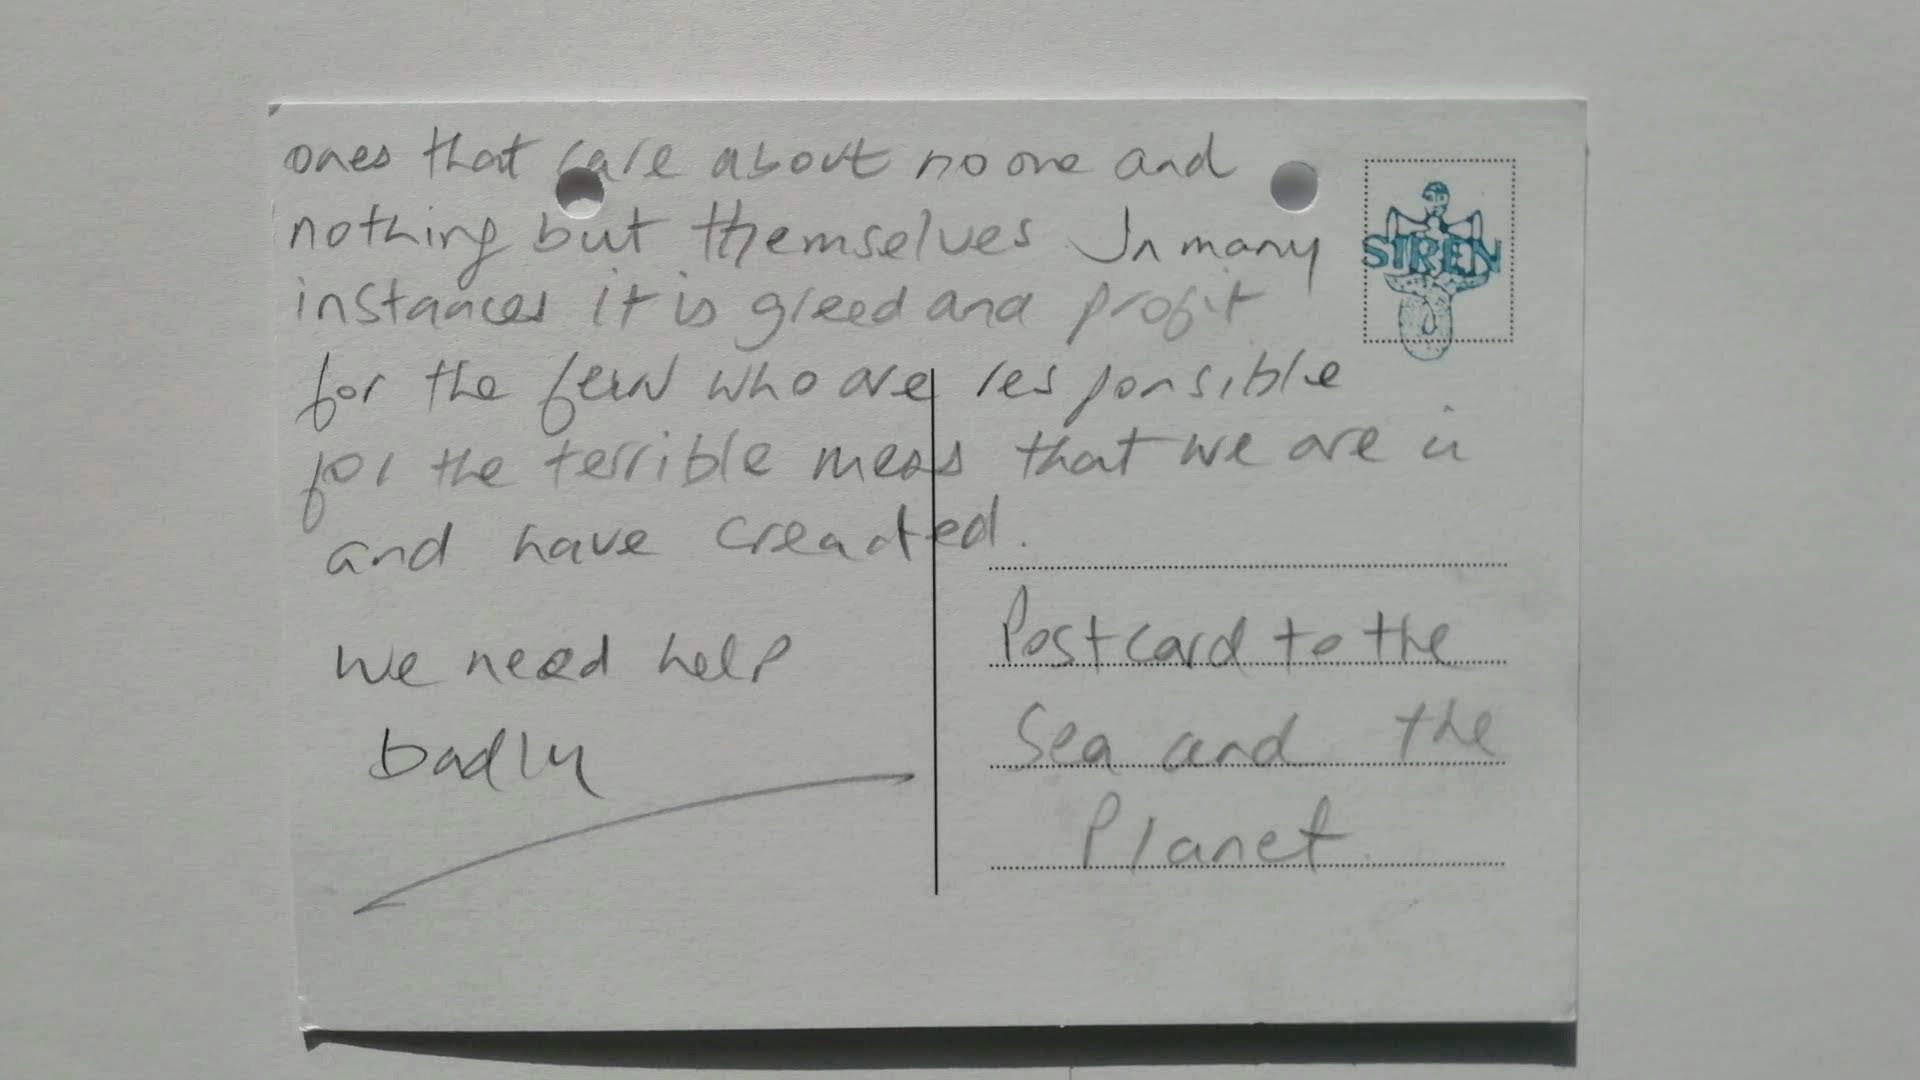 ones that care about no one and
nothing but themselves In many
instances it is greed and profit
for the few who are responsible
for the terrible mess that we are in
and have creacted.
We need help
badly
SIREN
Postcard to the
Sea and the
Planet.